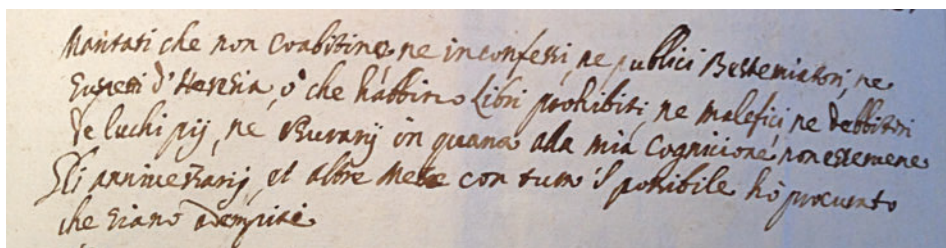 Maritati che non Coabitino, ne inconfessi, ne publici Bestemiatori, ne
suspetti d'Heresia, ò che habbino Libri prohibiti, ne malefici, ne debbitori
de luchi pij, ne Usurarij in quanto alla mia Cognicione, non essermene
Gli anniversarij, et altre Messe con tutto 'l possibile hò procurato
che siano adempite